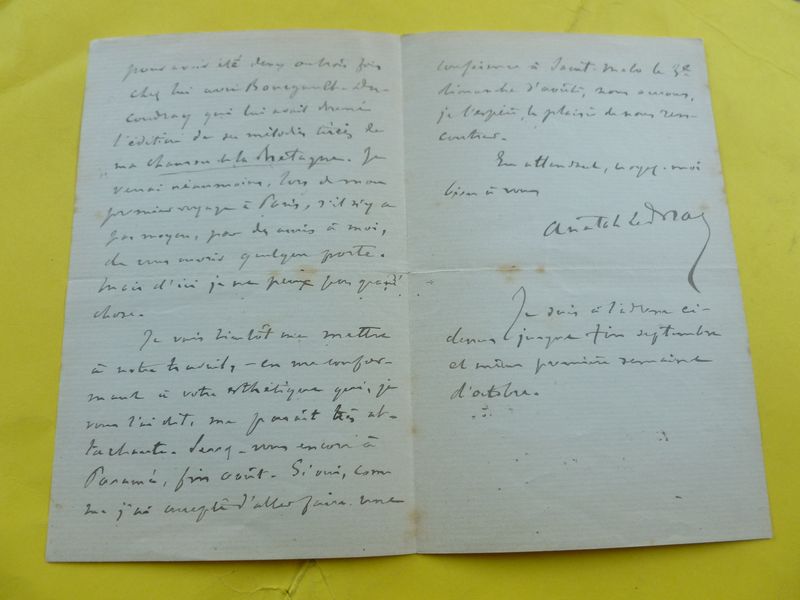 pour avoir été deux ou trois fois
chez lui avec Bourgault-Du-
coudray qui lui avait donné
l'édition de ses mélodies tirées de
ma chanson de la Bretagne. Je
verrai néanmoins, lors de mon
premier voyage à Paris, s'il n'y a
pas moyen, par des amis à moi,
de vous ouvrir quelque porte.
Mais d'ici je ne peux pas grand'
chose.
Je vais bientôt me mettre
à notre travail, - en me confor-
mant à votre esthétique qui, je
vous l'ai dit, me paraît très at-
tachante. Serez-vous encore à
Paramé, fin août. Si oui, com-
me j'ai accepté d'aller faire une
conférence à Saint-Malo le 3e
dimanche d'août, nous aurons,
je l'espère, le plaisir de nous ren-
contrer.
En attendant, croyez-moi
bien à vous
Anatole Le Braz
Je suis à l'adresse ci-
dessus jusque fin septembre
et même première semaine
d'octobre.